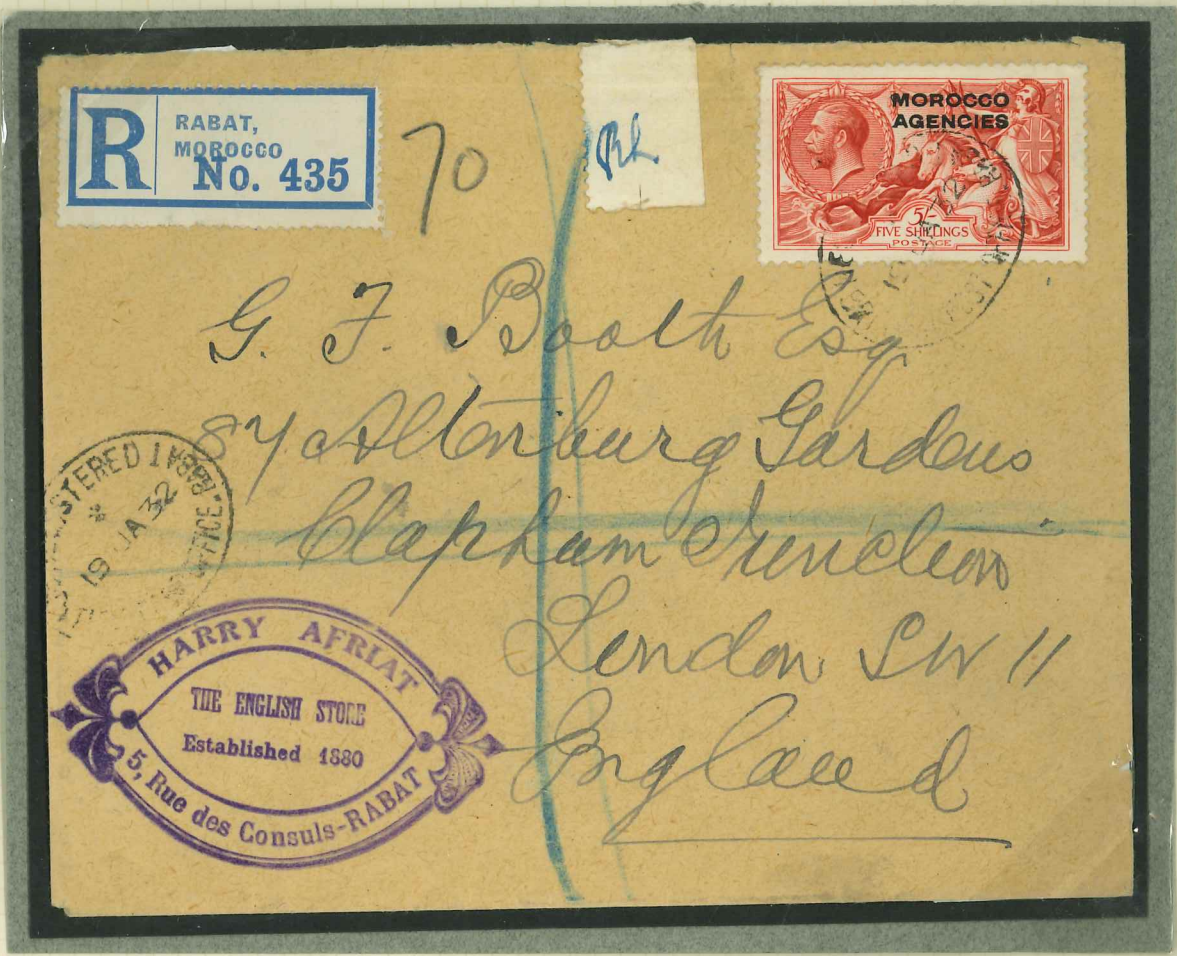 R
RABAT,
MOROCCO
No. 435
70
MOROCCO
AGENCIES
5/-
FIVE SHILLINGS
POSTAGE
19 JA 32
POST OFFICE
G. F. Booth Esq
84 Altenburg Gardens
Clapham Junction
London SW 11
England
REGISTERED
RABAT
19 JA 32
OFFICE
HARRY AFRIAT
THE ENGLISH STORE
Established 1880
5, Rue des Consuls-RABAT